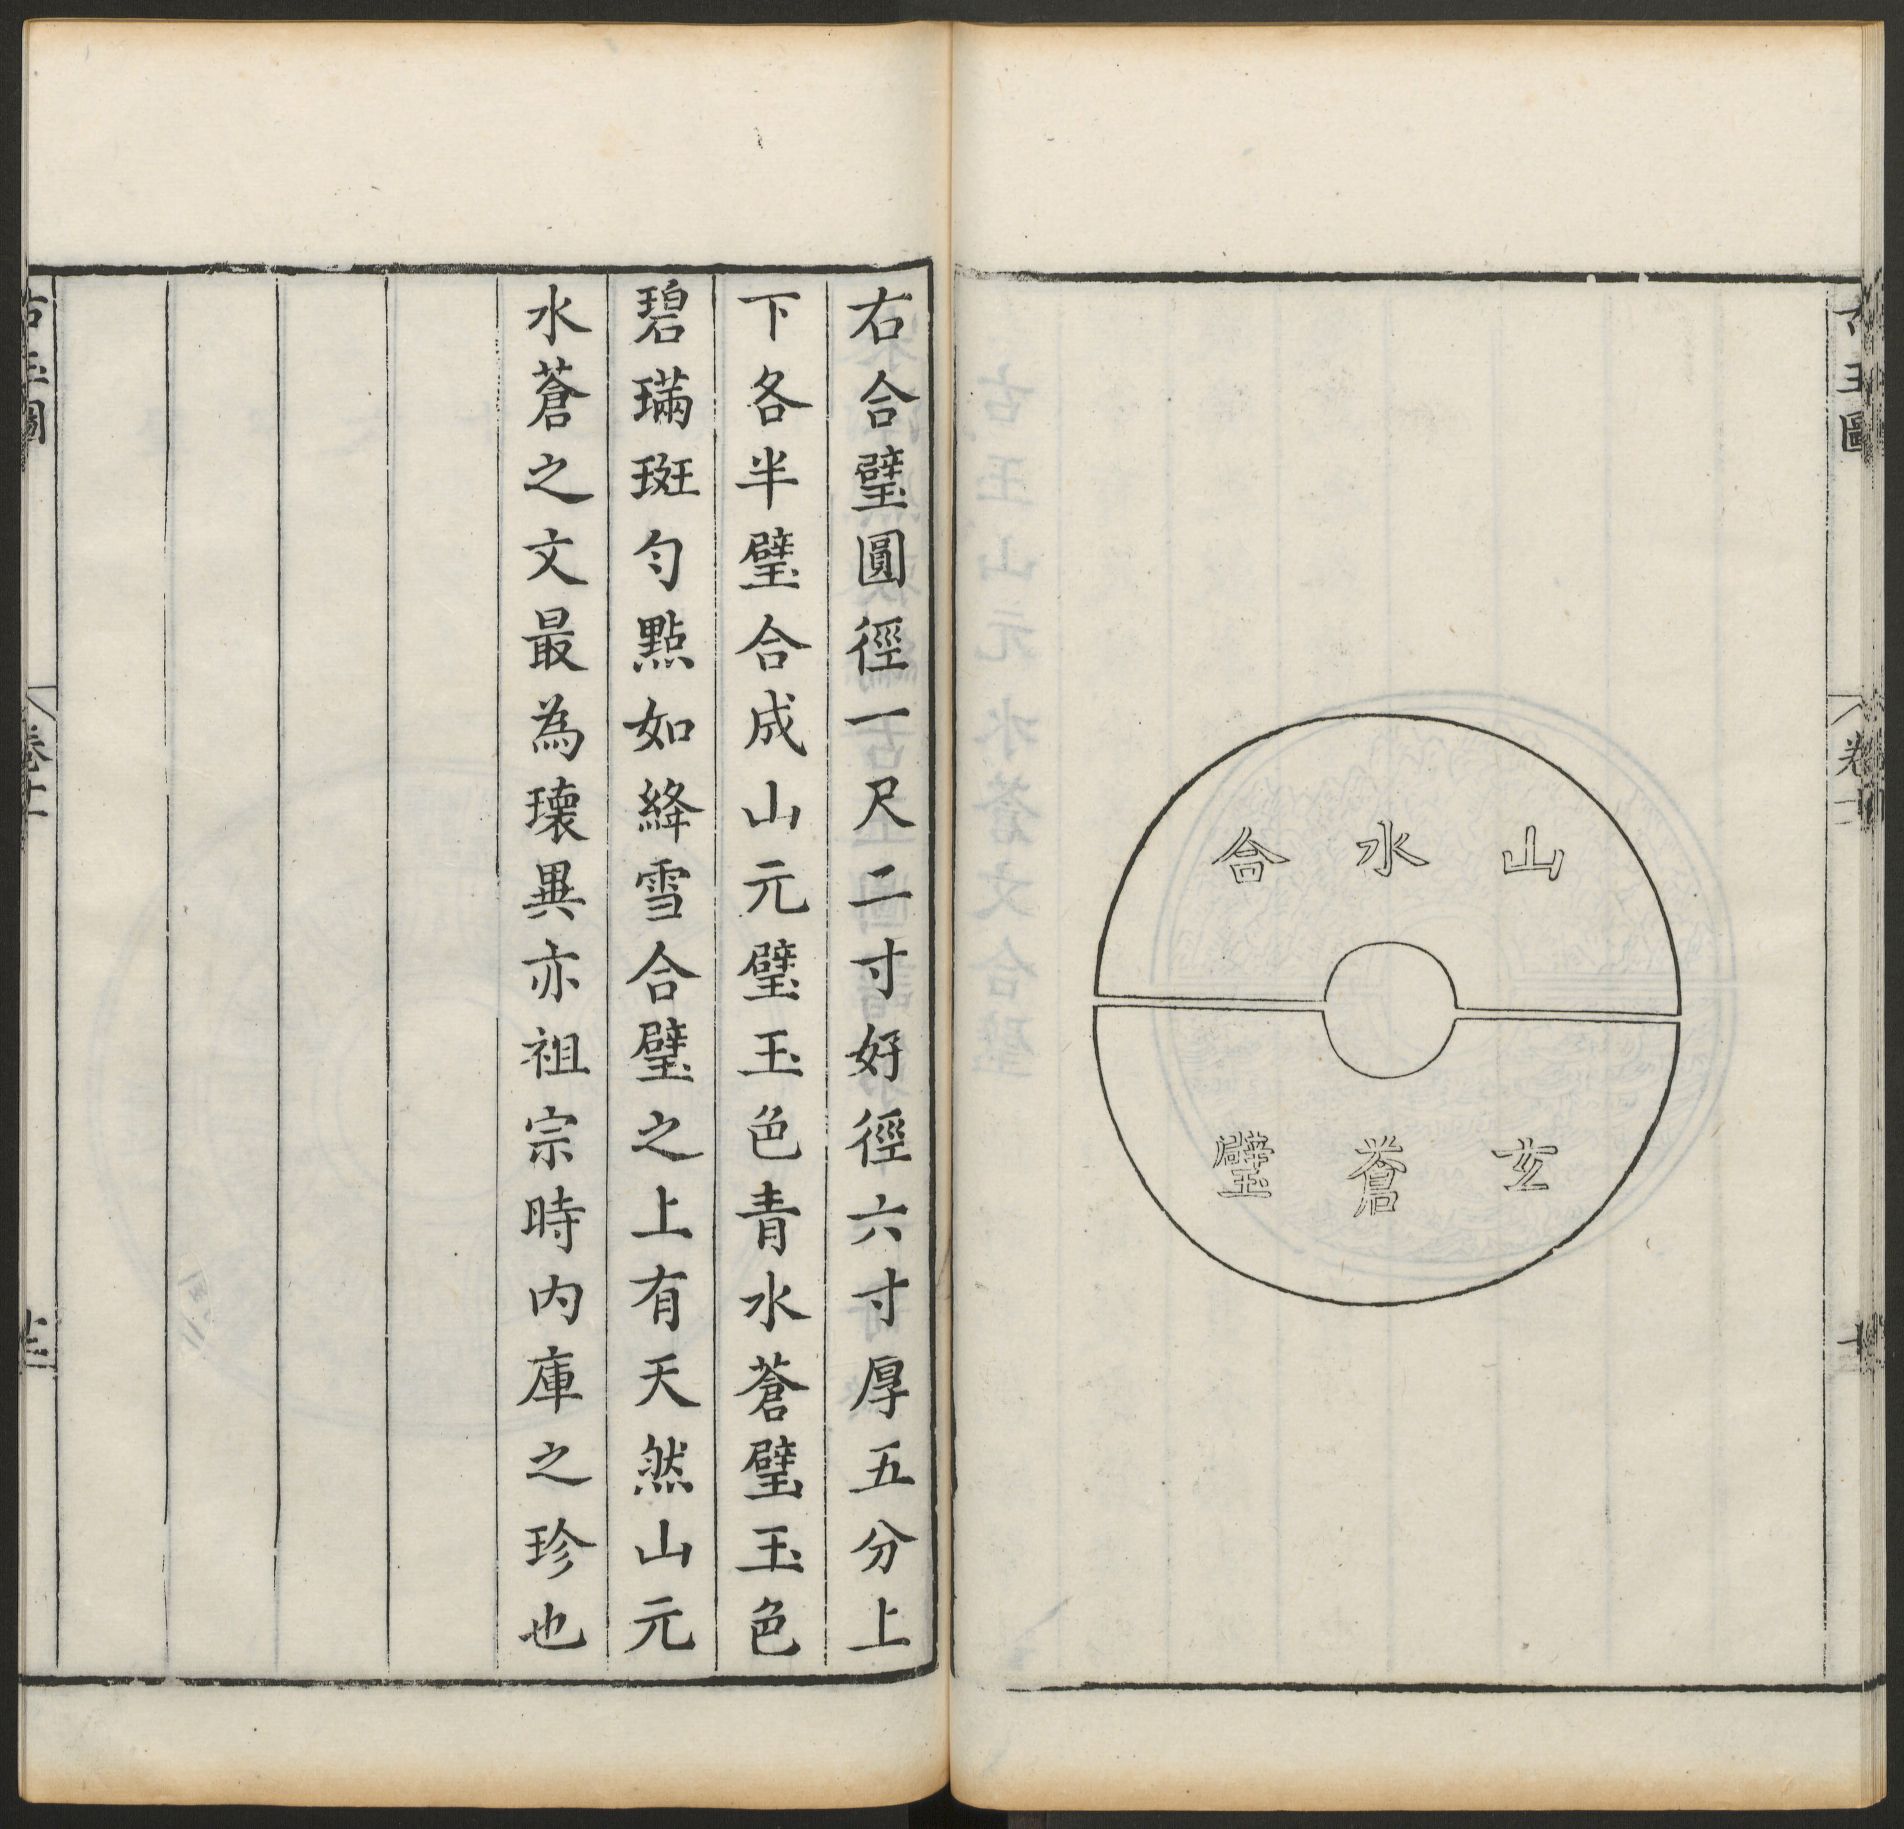 古玉圖
卷十
十二
山水合
玄蒼璧
右合璧圓徑一尺二寸好徑六寸厚五分上
下各半璧合成山元璧玉色青水蒼璧玉色
碧璊斑勻點如絳雪合璧之上有天然山元
水蒼之文最為瓌異亦祖宗時內庫之珍也
古玉圖
卷十
十三